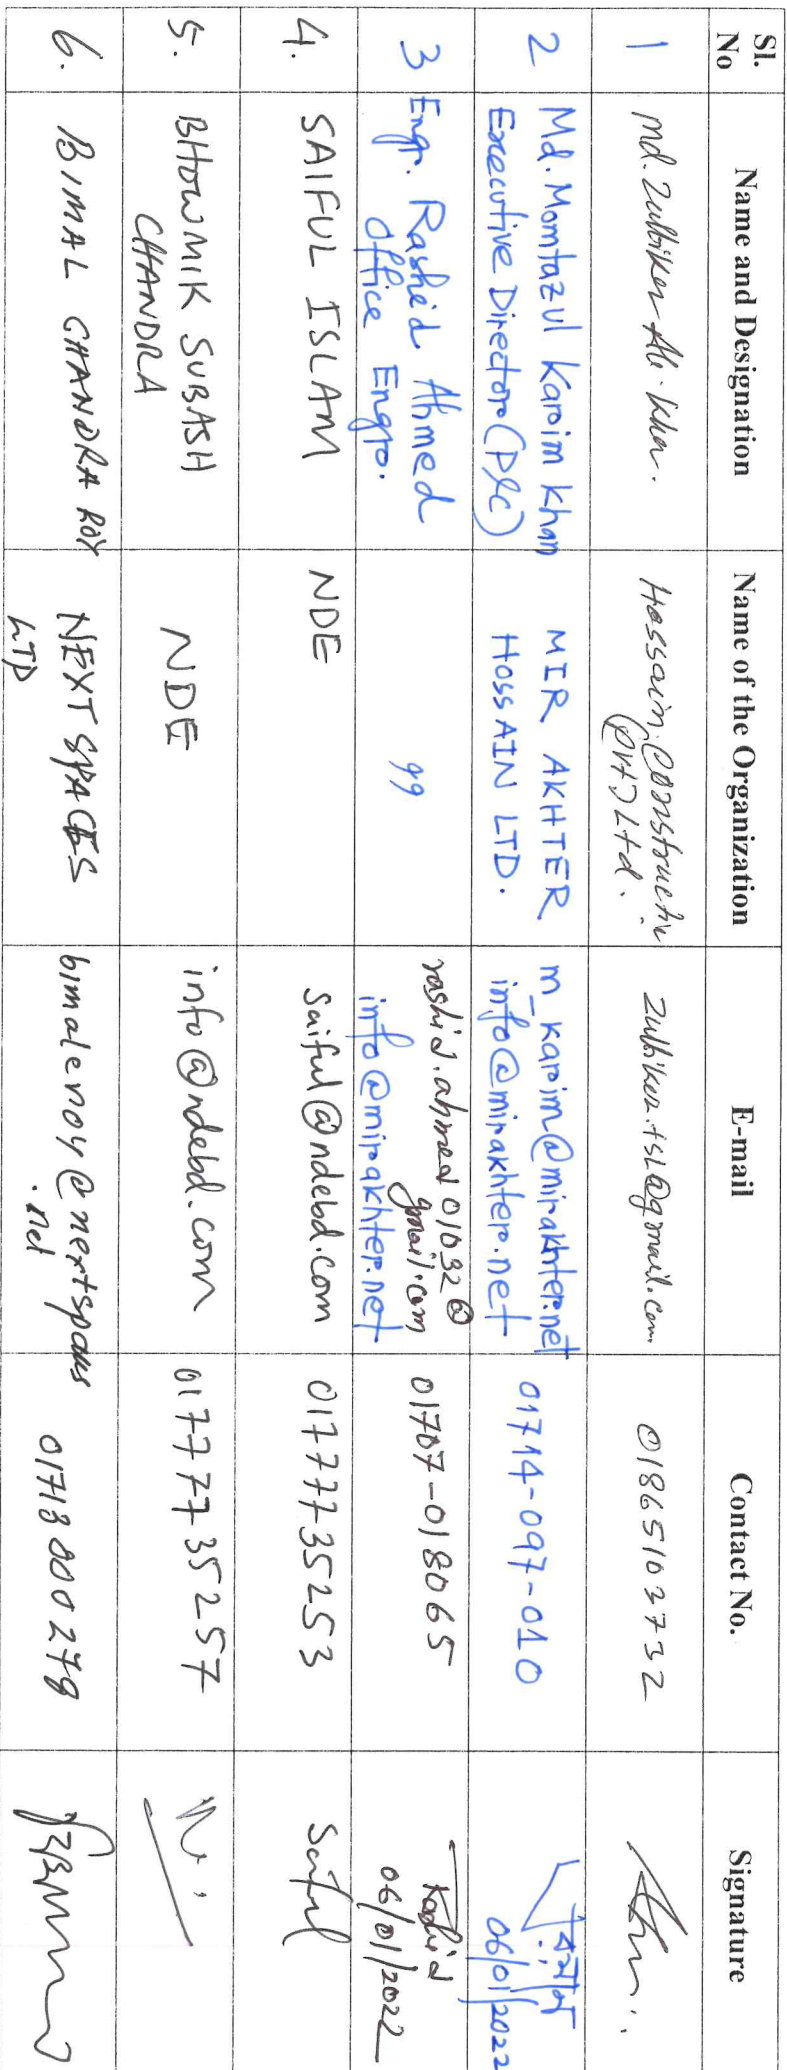 Sl. No
Name and Designation
Name of the Organization
E-mail
Contact No.
Signature
1
Md. Zulfiker Ali Khan.
Hossain Constructin
(Pvt) Ltd.
zulfiker.tsl@gmail.com
01865102732
2
Md. Momtazul Karim Khan
Executive Director (P&C)
MIR AKHTER
HOSSAIN LTD.
m_karim@mirakhter.net
info@mirakhter.net
01714-097-010
06/01/2022
3
Engr. Rashid Ahmed
Office Engr.
99
rashid.ahmed01032@
gmail.com
info@mirakhter.net
01707-018065
Rashid
06/01/2022
4.
SAIFUL ISLAM
NDE
saiful@ndebd.com
01777735253
Saiful
5.
BHOWMIK SUBASH
CHANDRA
NDE
info@ndebd.com
01777735257
6.
BIMAL CHANDRA ROY
NEXT SPACES
LTD
.net